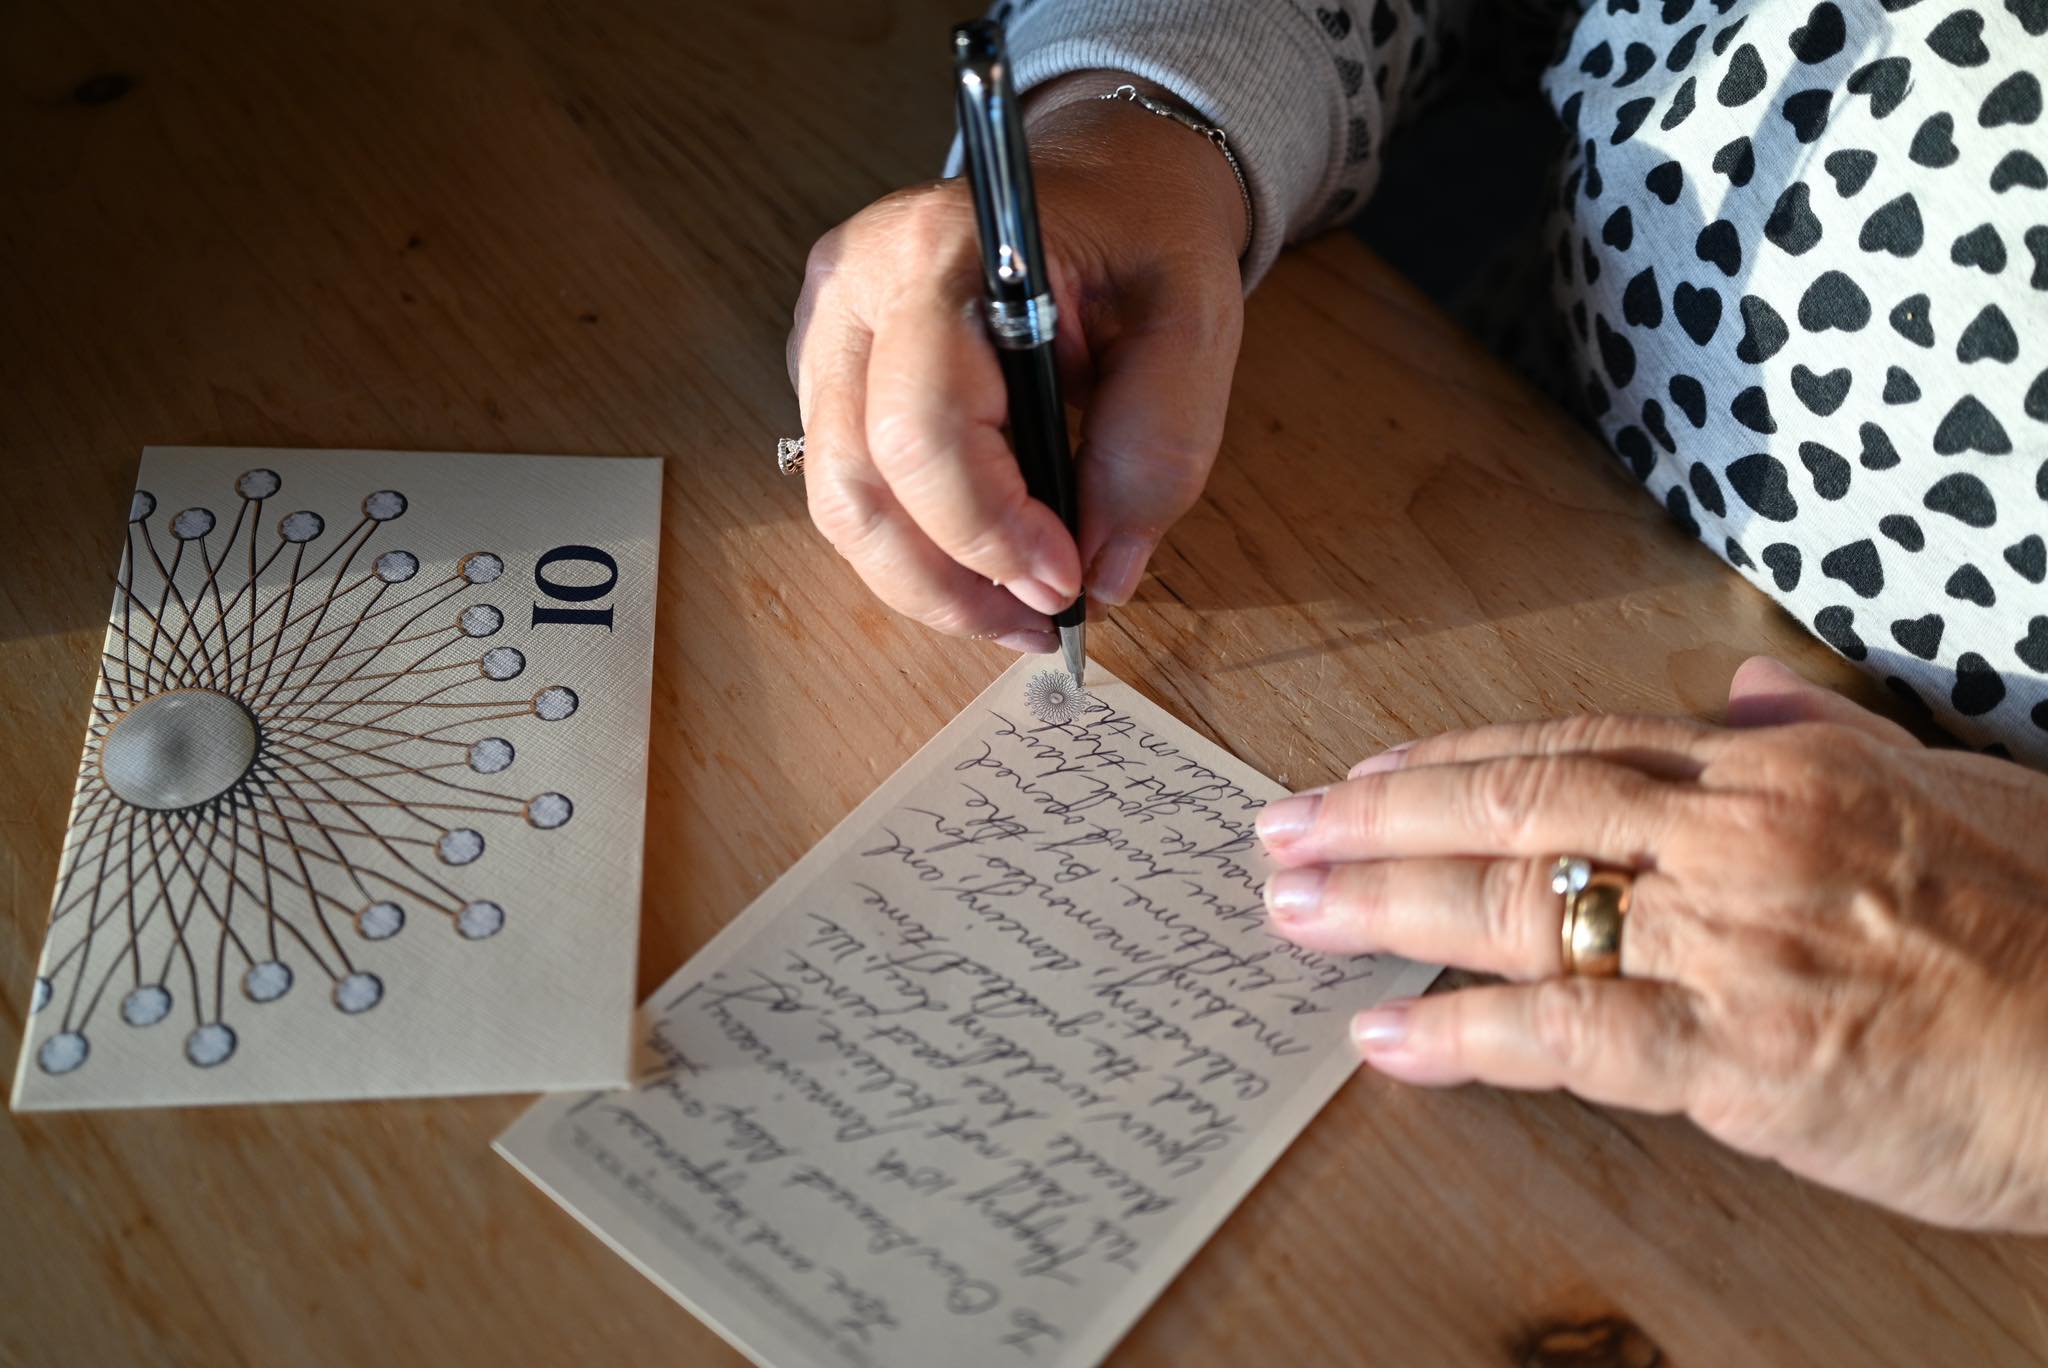 10
Love and Happiness!
To Our Dearest Abby and Ian,
Happy 10th Anniversary!
not believe, a
decade has past since
your wedding day. We
had the greatest time
celebrating, dancing, and
making memories for
a lifetime. By the
time you have opened
you have
bought that
in the